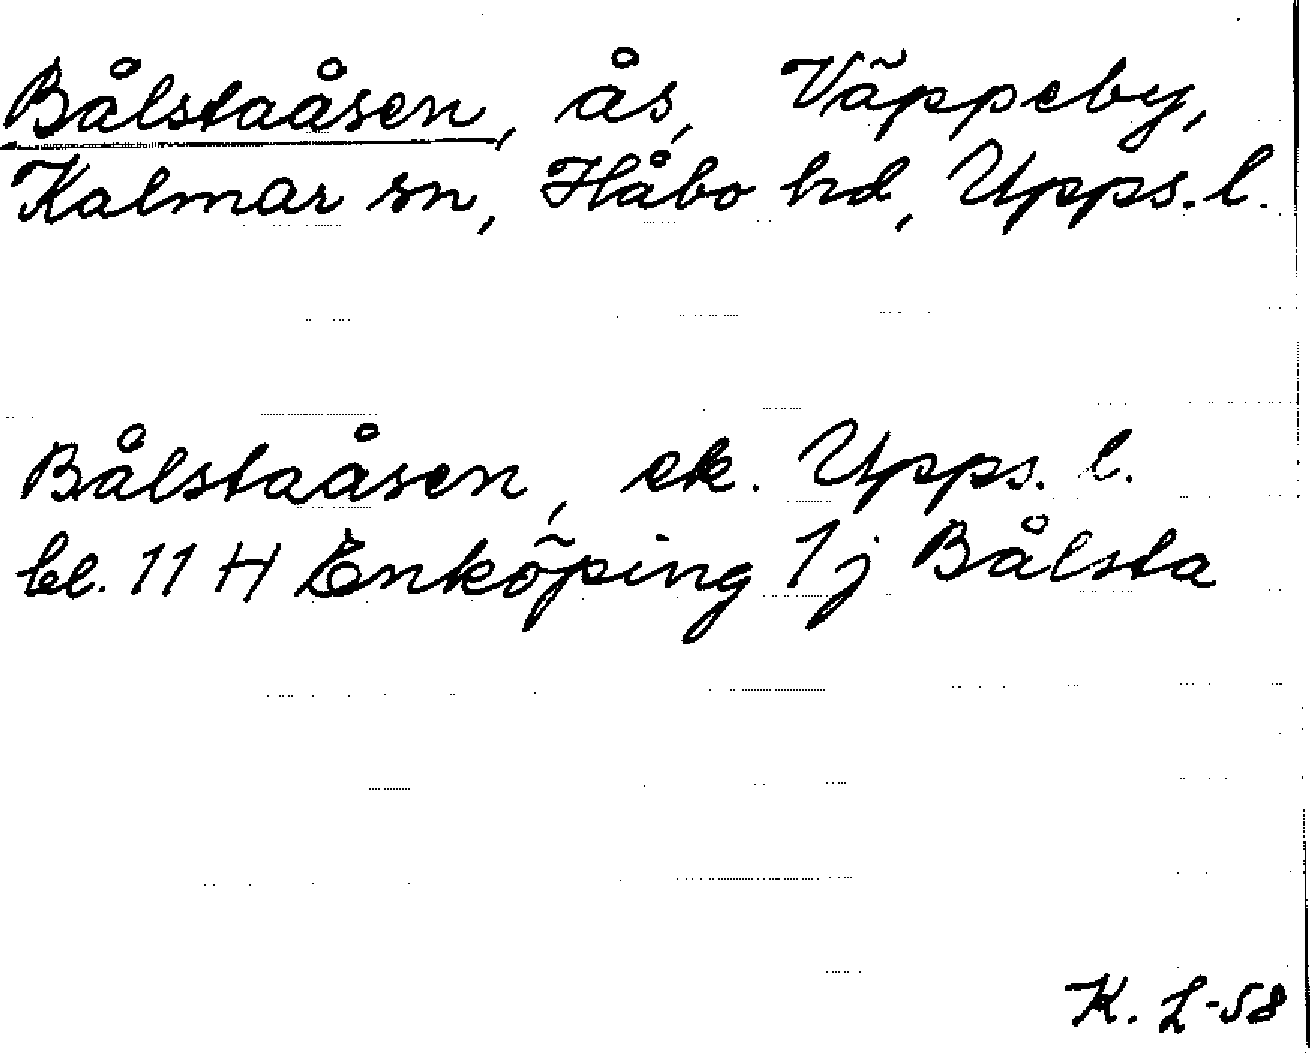 Bålstaåsen, ås, Väppeby,
Kalmar sn, Håbo hd, Upps. l.
Bålstaåsen, ek. Upps. l.
bl. 11 H Enköping 1j Bålsta
K. L-58